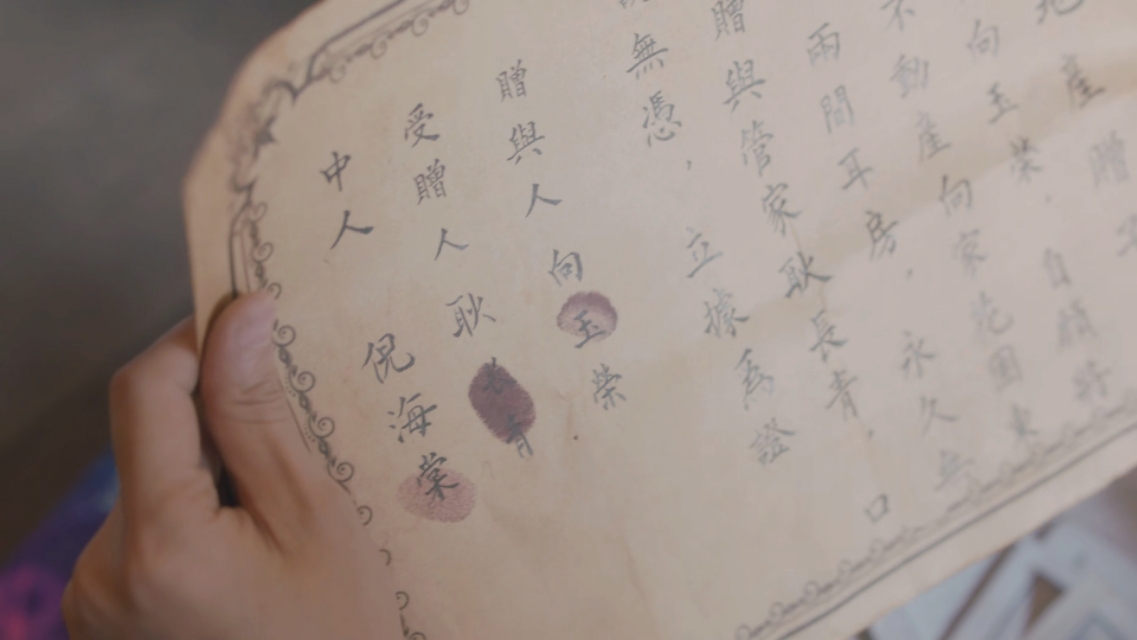 地產贈
向玉榮，自願將
不動產向家花園東
兩間耳房，永久無
贈與管家耿長青，口
無憑，立據為證
贈與人向玉榮
受贈人耿長青
中人倪海棠